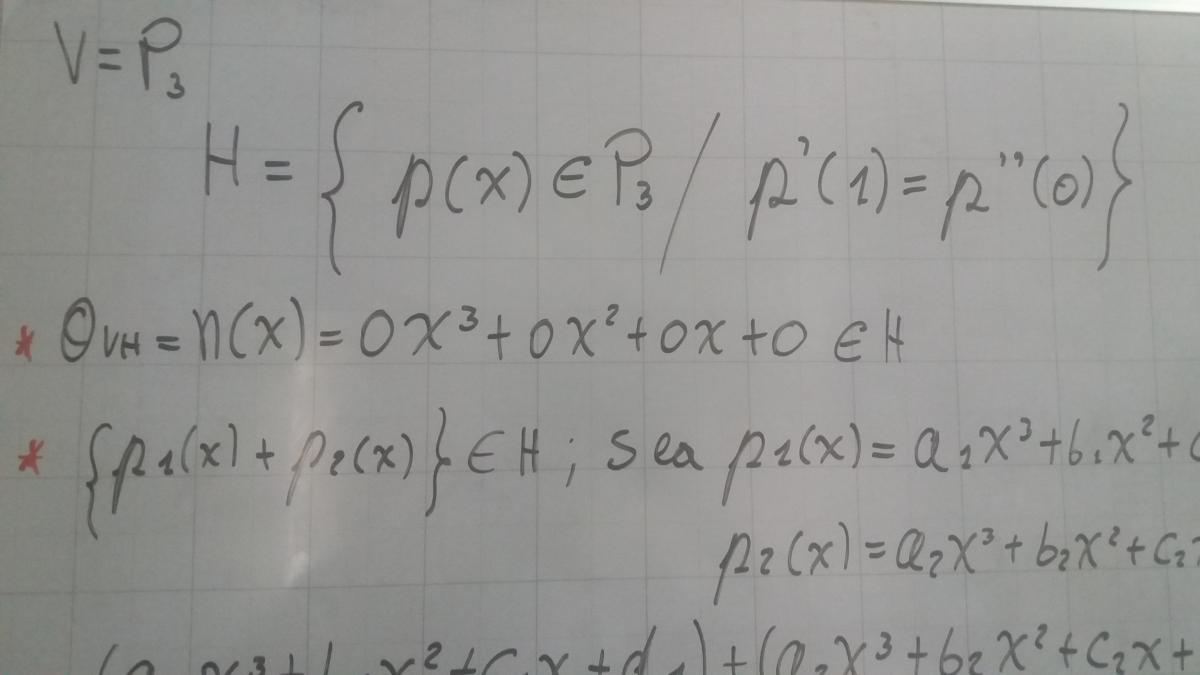 V = P₃
H = { p(x) ∈ P₃ / p'(1) = p''(0) }
* θ_VH = n(x) = 0x³ + 0x² + 0x + 0 ∈ H
* {p₁(x) + p₂(x)} ∈ H ; Sea p₁(x) = a₁x³ + b₁x² + c
p₂(x) = a₂x³ + b₂x² + c₂
x³ + x² + c x + d₁) + (a₂x³ + b₂x² + c₂x +